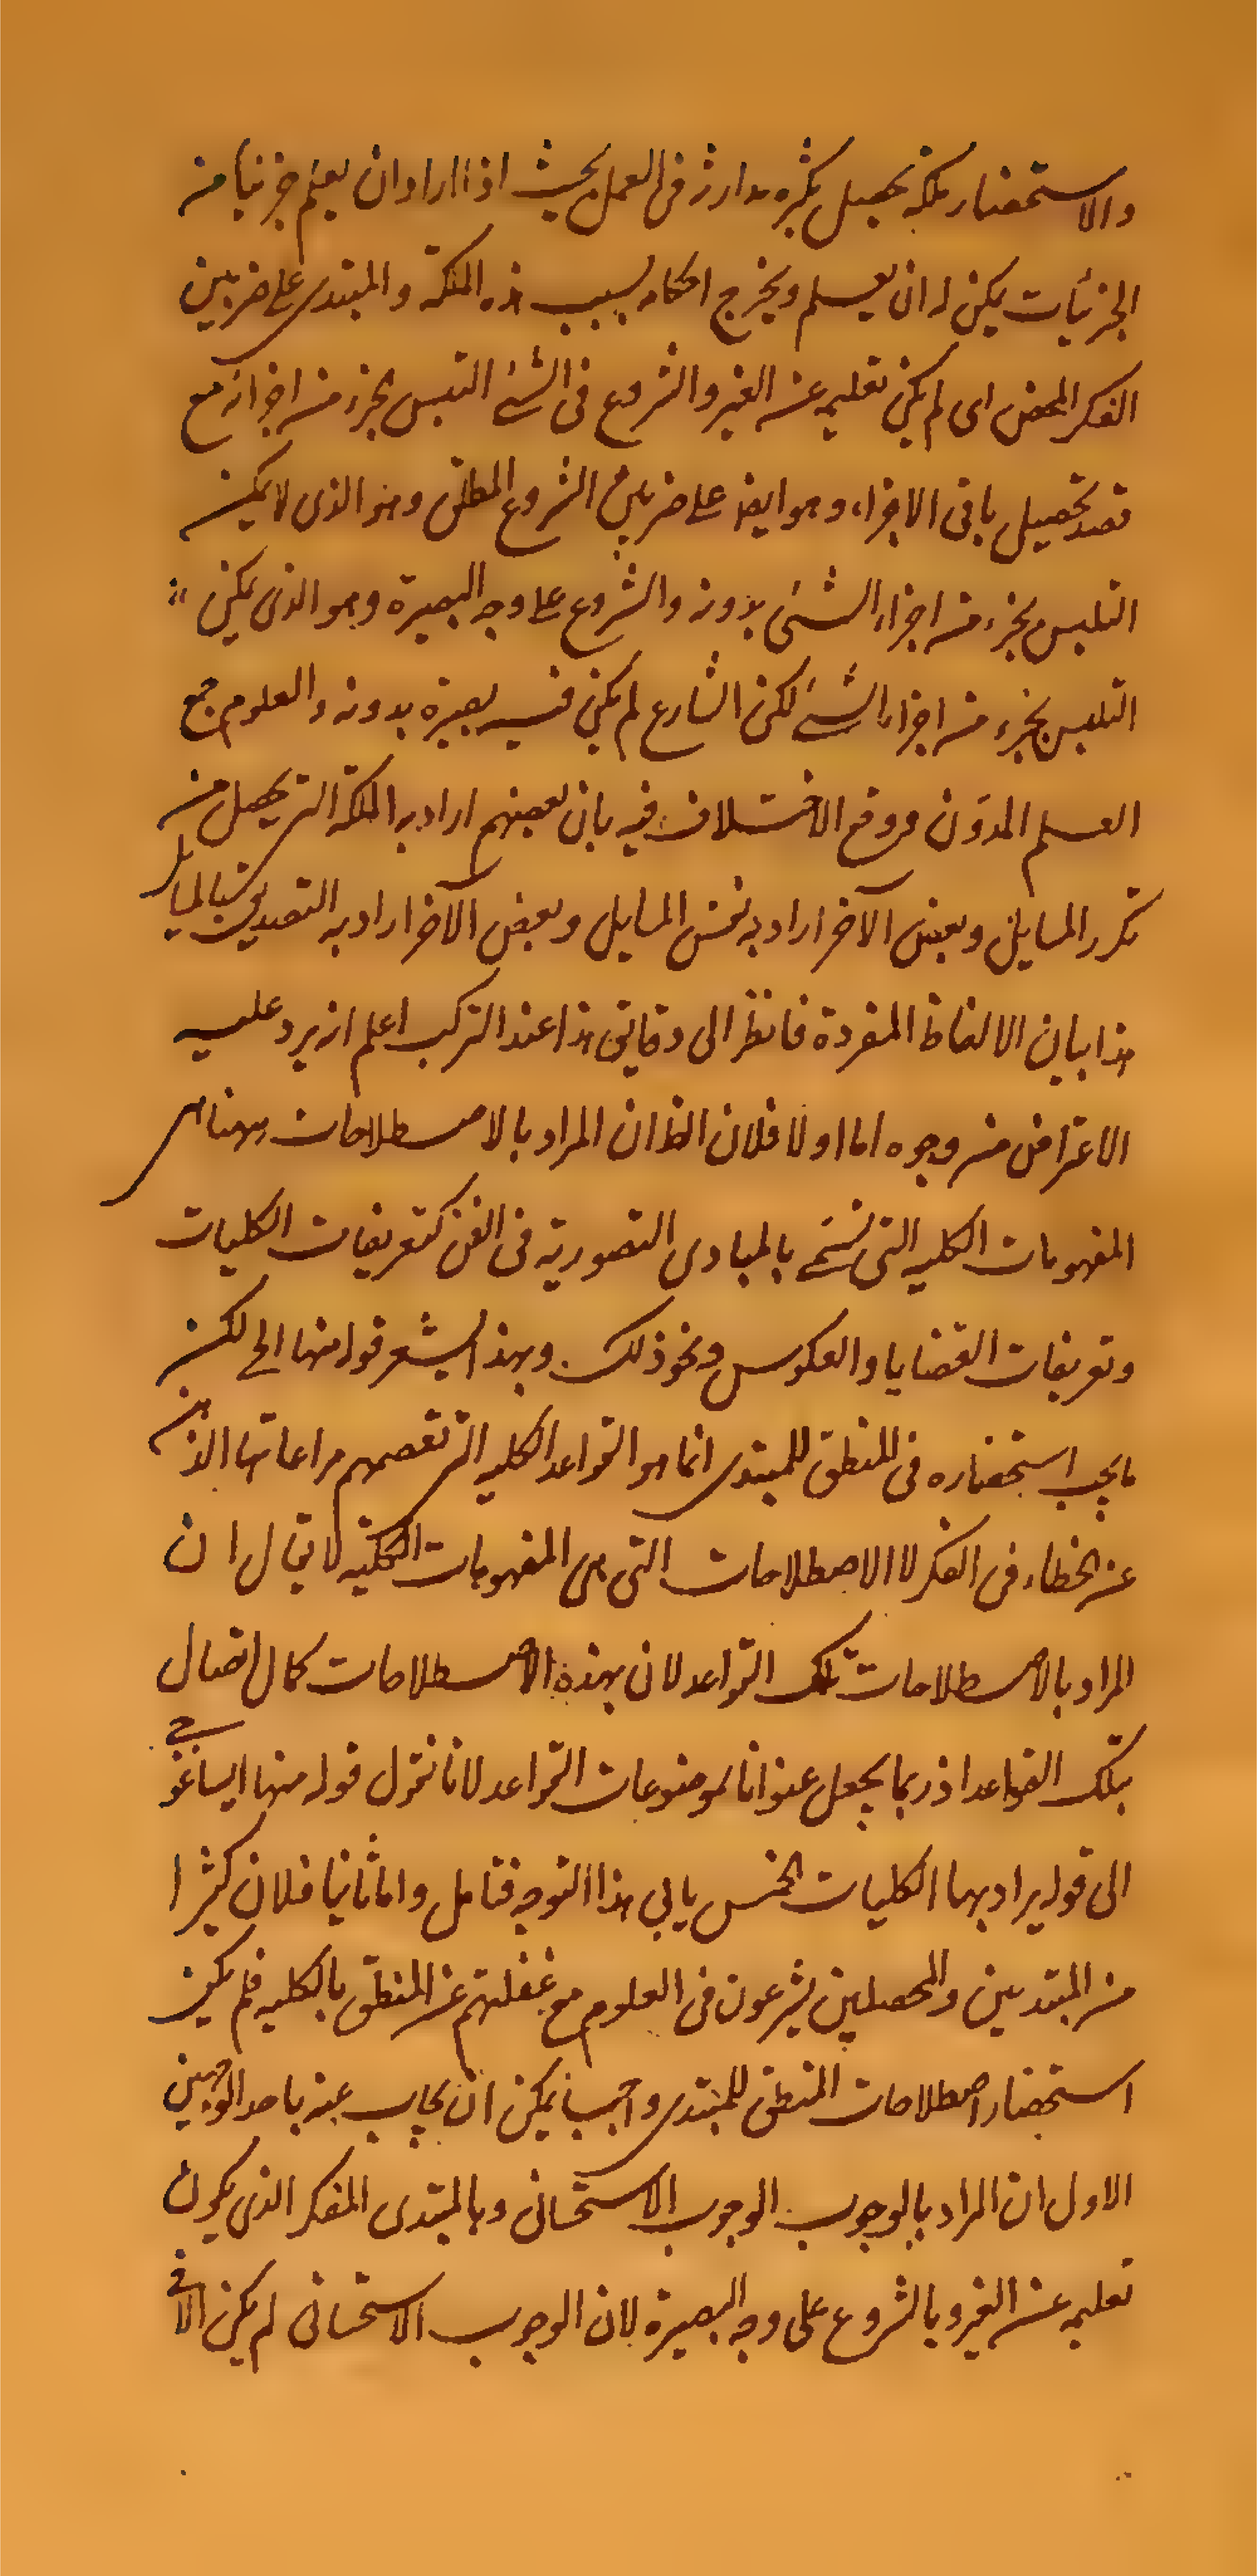 والاستحضار ملكة تحصيل بكثرة مدارة فى العمل بحيث اذا اراد ان يعلم جزئيا من
الجزئيات يمكن له ان يعلم ويخرج احكامه بسبب هذه الملكة والمبتدى على ضربين
الفكر المحض اى لم يكن تعليمه عن الغير والشروع فى الشئ التلبس بجزء من اجزائه مع
قصد تحصيل باقى الاجزاء وهو ايضا على ضربين الشروع المطلق وهو الذى لا يمكن
التلبس بجزء من اجزاء الشئ بدونه والشروع على وجه البصيرة وهو الذى يمكن
التلبس بجزء من اجزاء الشئ لكن الشارع لم يكن فيه بصيرة بدونه والعلوم جمع
العلم المدوّن ووقع الاختلاف فيه بان بعضهم اراد به الملكة التى يحصل من
تكرر المسايل وبعض الآخر اراد به نفس المسايل وبعض الآخر اراد به التصديق بالمسايل
هذا بيان الالفاظ المفردة فانظر الى دقايق هذا عند التركب اعلم انه يرد عليه
الاعتراض من وجوه اما اولا فلان الظ ان المراد بالاصطلاحات ههنا هى
المفهومات الكليه التى تسمى بالمبادى التصورية فى الفن كتعريفات الكليات
وتعريفات القضايا والعكوس ونحو ذلك وبهذا يشعر قوله منها الخ لكن
ما يجب استحضاره فى المنطق للمبتدى انما هو القواعد الكليه التى تعصم مراعاتها الذهن
عن الخطاء فى الفكر لا الاصطلاحات التى هى المفهومات الكلية لا يقال ان
المراد بالاصطلاحات تلك القواعد لان بهذه الاصطلاحات كمال اتصال
بتلك القواعد اذ ربما يجعل عنوانا لموضوعات القواعد لانا نقول قوله منها ايساغوجى
الى قوله يراد بها الكليات الخمس يابى هذا التوجه فتامل واما ثانيا فلان كثيرا
من المبتدئين والمحصلين يشرعون فى العلوم مع غفلتهم عن المنطق بالكليه فلم يكن
استحضار اصطلاحات المنطق للمبتدى واجبا يمكن ان يجاب عنه باحد الوجهين
الاول ان المراد بالوجوب الوجوب الاستحسانى وبالمبتدى المفكر الذى يكون
تعليمه عن الغير وبالشروع على وجه البصيرة لان الوجوب الاستحسانى لم يكن الا فى